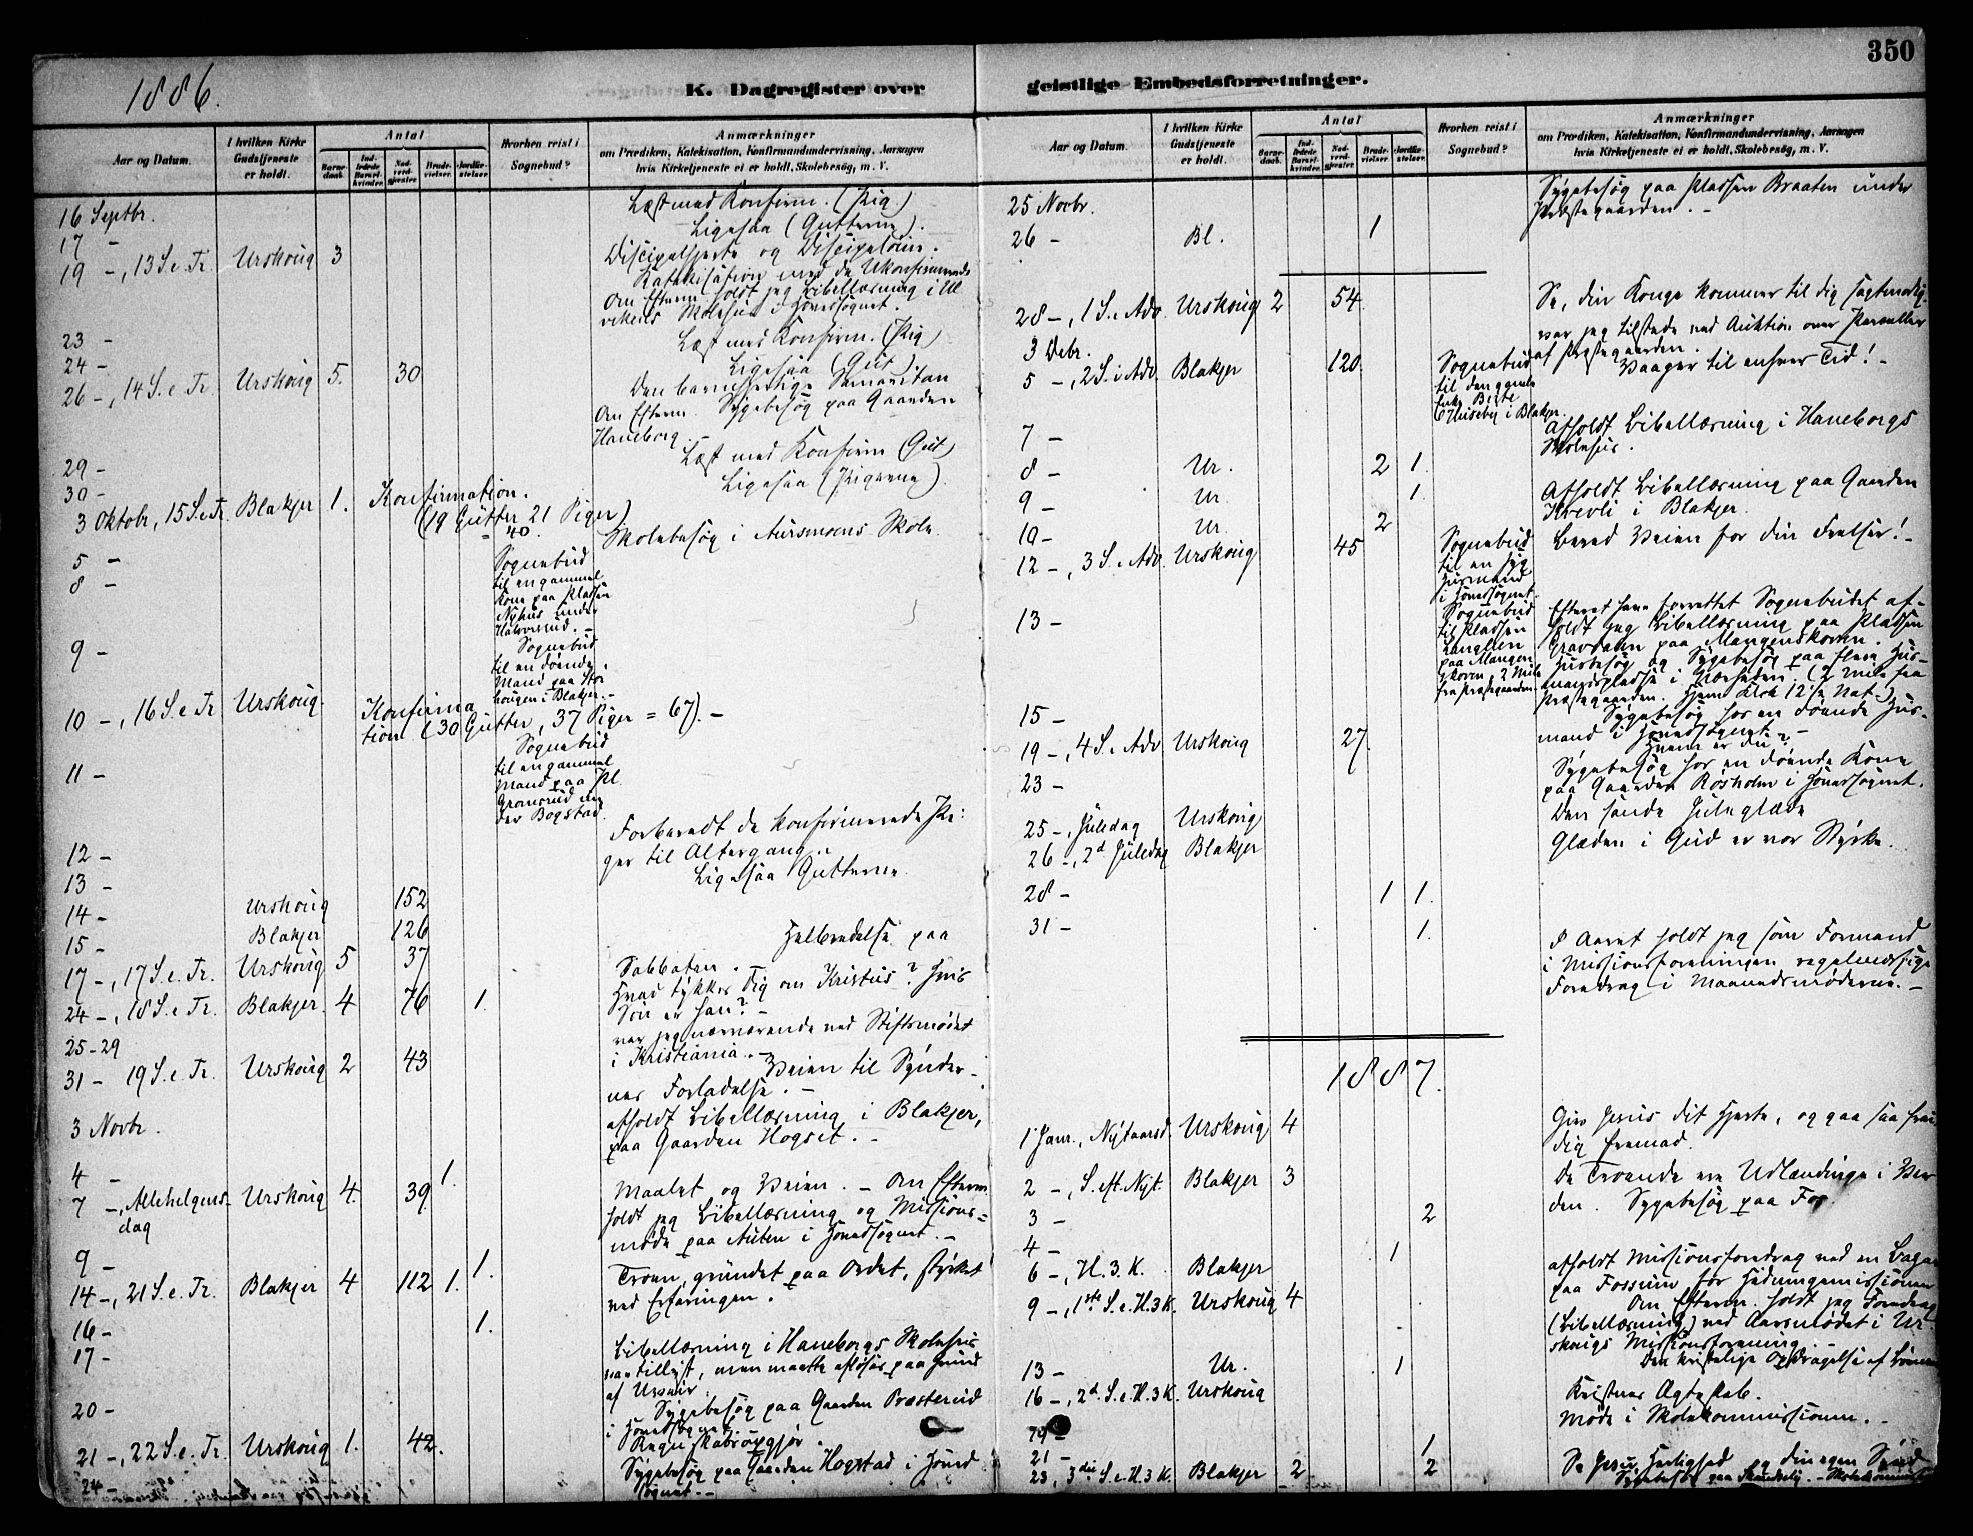 350
1886.
K. Dagregister over
geistlige Embedsforretninger.
Aar og Datum.
I hvilken Kirke Gudstjeneste er holdt.
Antal
Barnedaab.
Indledede Barselkvinder.
Nadverdgjester
Brudevielser.
Jordfæstelser.
Hvorhen reist i Sognebud?
Anmærkninger
om Prædiken, Katekisation, Konfirmandundervisning, Aarsagen
hvis Kirketjeneste ei er holdt, Skolebesøg, m. V.
16 Septbr. Læst med Konfirm. (Pig.)
17 - Ligesaa (Gutterne).
19 -, 13 S. e. Tr. Urskoug 3 Discipelhjerte og Discipelsind.
Katekisation med de Ukonfirmerede
Om Efterm. holdt jeg Bibellæsning i Ul
vikens Skolehus i Hovedsognet.
23 - Læst med Konfirm. (Pig)
24 - Ligesaa (Gut)
26 -, 14 S. e. Tr. Urskoug 5. 30 Den barmhjertige Samaritan
Om Efterm. Sygebesøg paa Gaarden
Haneborg. -
29 - Læst med Konfirm (Gut)
30 - Ligesaa (Pigerne)
3 Oktobr, 15 S. e. Tr. Blakjer 1. Konfirmation.
(19 Gutter 21 Piger)
= 40.
5 - Skolebesøg i Aursmoens Skole
8 - Sognebud
til en gammel
Kone paa Pladsen
Nyhus under
Halvorsrud. -
9 - Sognebud
til en døende
Mand paa Stor
hougen i Blakjer. -
10 -, 16 S. e. Tr Urskoug. Konfirma
tion (30 Gutter, 37 Piger = 67). -
11 - Sognebud
til en gammel
Mand paa Pl.
Gransrud un
der Bogstad.
12 - Forberedt de konfirmerede Pi-
ger til Altergang. -
13 - Ligesaa Gutterne.
14 - Urskoug 152
15 - Blakjer 126
17 -, 17 S. e. Tr. Urskoug 5 37 Helbredelse paa
Sabbaten.
24 -, 18 S. e. Tr. Blakjer. 4 76 1. Hvad tykkes Dig om Kristus? Hvis
Søn er han? -
25-29 var jeg nærværende ved Stiftsmødet
i Kristiania. -
31 - 19 S. e. Tr. Urskoug 2 43 Veien til Synder-
nes Forladelse. -
3 Novbr. afholdt Bibellæsning i Blakjer,
paa Gaarden Hogset. -
4 - 1.
7 -, Allehelgens- dag Urskoug 4. 39. Maalet og Veien. - Om Efterm.
holdt jeg Bibellæsning og Missions=
møde paa Auten i Hovedsognet. -
9 - 1.
14 -, 21 S. e. Tr. Blakjer 4 112 1. Troen, grundet paa Ordet, styrket
ved Erfaringen.
16 - 1.
17 - Bibellæsning i Haneborgs Skolehus
var tillyst, men maatte aflyses paa Grund
af Uveir.
20 - Sygebesøg paa Gaarden Præsterud
i Hovedsognet
21 -, 22 S. e. Tr. Urskoug 1. 42. Regnskabsopgjør.
24 - Sygebesøg paa Gaarden Hogstad i Hoved
sognet. -
Aar og Datum.
I hvilken Kirke Gudstjeneste er holdt.
Antal
Barnedaab.
Indledede Barselkvinder.
Nadverdgjester
Brudevielser.
Jordfæstelser.
Hvorhen reist i Sognebud?
Anmærkninger
om Prædiken, Katekisation, Konfirmandundervisning, Aarsagen
hvis Kirketjeneste ei er holdt, Skolebesøg, m. V.
25 Novbr. Sygebesøg paa Pladsen Braaten under
Præstegaarden. -
26 - Bl. 1
28 -, 1 S. i Adv. Urskoug 2 54. Se, din Konge kommer til dig sagtmodig
3 Debr. var jeg tilstede ved Auktion over Parceller
af Præstegaarden.
5 -, 2 S. i Adv. Blakjer 120. Sognebud
til den gamle
Enke Berte
Huseby i Blakjer. Vaager til enhver Tid! -
7 - Afholdt Bibellæsning i Haneborgs
Skolehus.
8 - Ur. 2 1.
9 - Ur. 1. Afholdt Bibellæsning paa Gaarden
Kvevli i Blakjer.
10 - Ur. 2
12 -, 3 S. i Adv. Urskoug 45 Sognebud
til en syg
Husmand
i Hovedsognet. Bered Veien for din Frelser! -
13 - Sognebud
til Pladsen
Langlien
paa Mangen
skoven 2 Mile
fra Præstegaarden. Efterat have forrettet Sognebudet af-
holdt jeg Bibellæsning paa Pladsen
Gravdalen paa Mangenskoven.
Husbesøg og Sygebesøg paa flere Hus-
mandspladse i Nærheden. (2 Mile fra
Præstegaarden. Hjem Klok 12½ Nat -)
15 - Sygebesøg hos en døende Hus-
mand i Hovedsognet. -
19 -, 4 S. i Adv Urskoug 27. Hvem er du?
23 - Sygebesøg hos en døende Kone
paa Gaarden Rosholm i Hovedsognet.
25 -, Juledag Urskoug Den sande Juleglæde
26 -, 2d Juledag Blakjer Glæden i Gud er vor Styrke.
28 - 1 1.
31 - 1. I Aaret holdt jeg som Formand
i Missionsforeningen regelmæssige
Foredrag i Maanedsmøderne. -
1887.
1 Janr., Nytaarsd. Urskoug 4 Giv Jesus dit Hjerte, og gaa saa frei
dig fremad.
2 -, S. eft. Nyt. Blakjer 3 De Troende ere Udlændinge i Ver
den.
3 - 2 Sygebesøg paa Fos
4 - 1
6 -, H. 3. K. Blakjer afholdt Missionsforedrag ved en Bazar
paa Fossum for Hedningemissionen
9 -, 1ste S. e. H. 3 K. Urskoug 4 Om Efterm. holdt jeg Foredrag
(Bibellæsning) ved Aarsmødet i Ur
skougs Missionsforening. -
13 - Ur. 1
16 -, 2d. S. e. H. 3 K. Urskoug Den kristelige Opdragelse af Børnene
Kristnes Ægteskab.
Møde i Skolekommissionen. -
21 - 1
23, 3die S. e. H. 3 K. Blakjer 2 2 Se Jesu Herlighed og din egen Synd
Sygebesøg paa